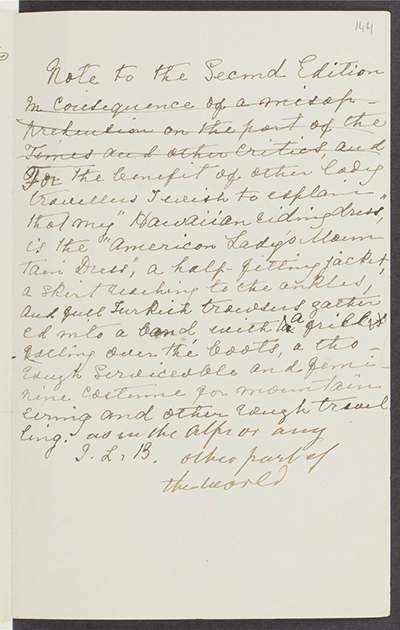 144
Note to the Second Edition
In consequence of a misap-
prehension on the part of the
Times and other critics, and
For the benefit of other lady
travellers I wish to explain
that my "Hawaiian riding dress",
is the "American Lady's Moun
tain Dress", a half-fitting jacket,
a skirt reaching to the ankles,
and full Turkish trousers gather
ed into a band with a frill
falling over the boots, a tho-
rough serviceable and femi-
nine costume for mountain
eering and other rough travel
ling. as in the Alps or any
I. L. B. other part of
the world